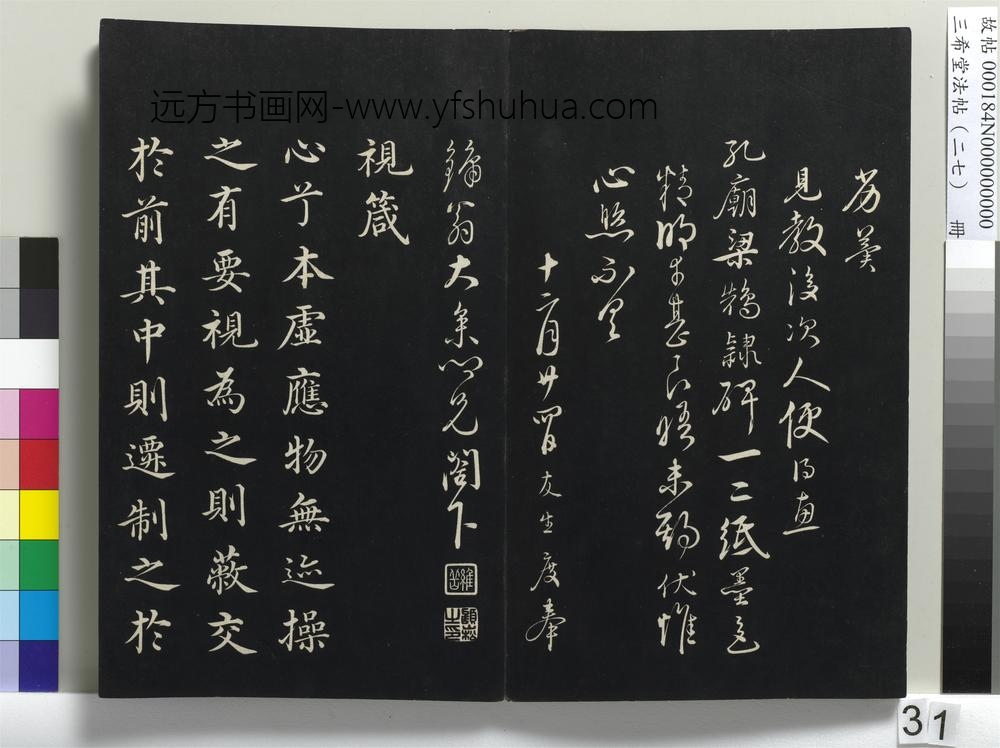 故帖 000184N000000000
三希堂法帖（二七） 冊
远方书画网-www.yfshuhua.com
芳羹
見教後次人便得惠
孔廟梁鵠隸碑一二紙墨色
精明者甚良晤未期伏惟
心照不具
十二月廿四日友生度奉
鏞翁大參心兄閣下
視箴
心兮本虛應物無迹操
之有要視為之則蔽交
於前其中則遷制之於
31